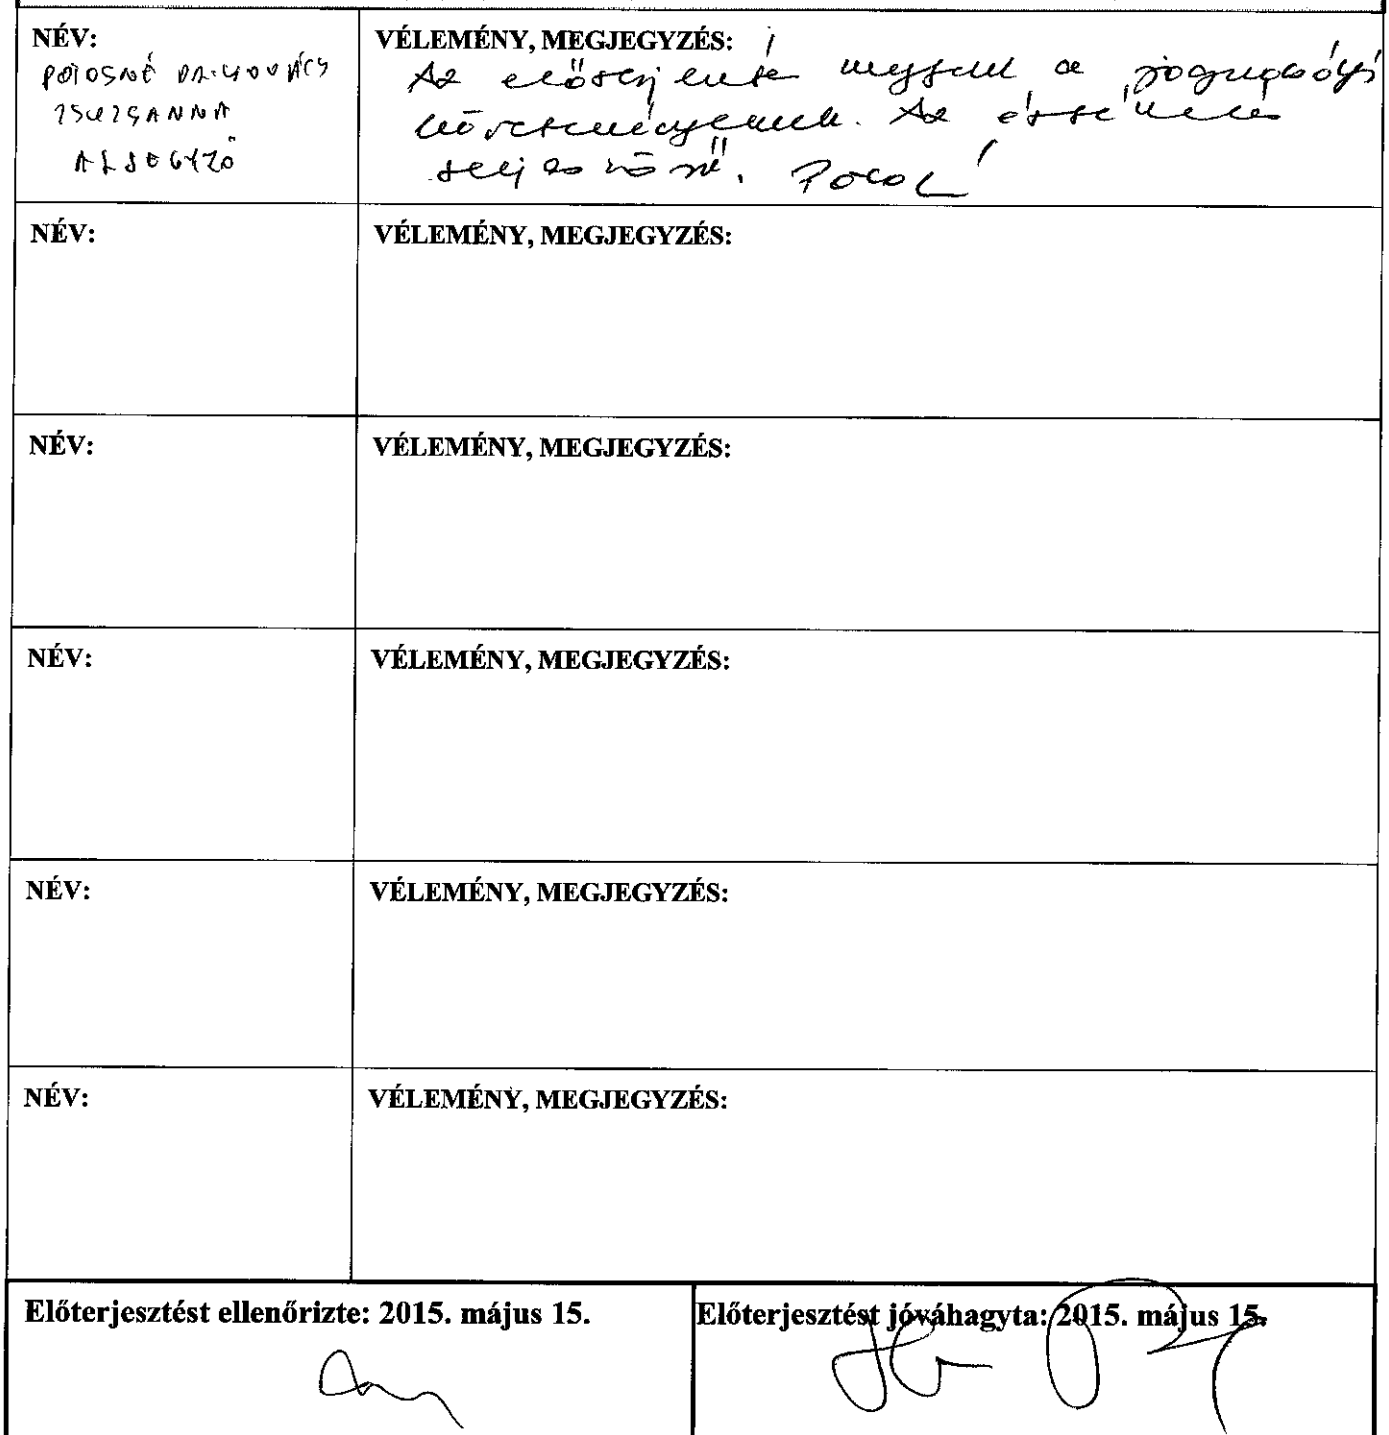 NÉV:
VÉLEMÉNY, MEGJEGYZÉS:
ZSUZSANNA
ALJEGYZŐ
Az előterjesztés megfelel a jogszabályi
követelményeknek. Az
NÉV:
VÉLEMÉNY, MEGJEGYZÉS:
NÉV:
VÉLEMÉNY, MEGJEGYZÉS:
NÉV:
VÉLEMÉNY, MEGJEGYZÉS:
NÉV:
VÉLEMÉNY, MEGJEGYZÉS:
NÉV:
VÉLEMÉNY, MEGJEGYZÉS:
Előterjesztést ellenőrizte: 2015. május 15.
Előterjesztést jóváhagyta: 2015. május 15.